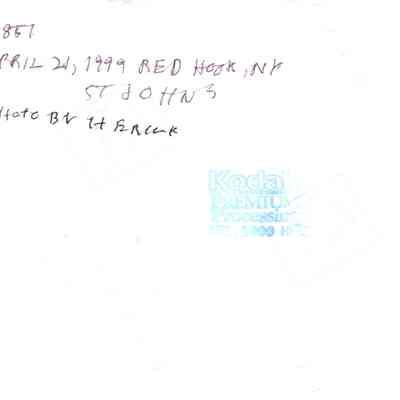 851
PRIL 21, 1999 RED HOOK, NY
ST JOHNS
HOTO BY H
Koda
PREMIUM
Processin